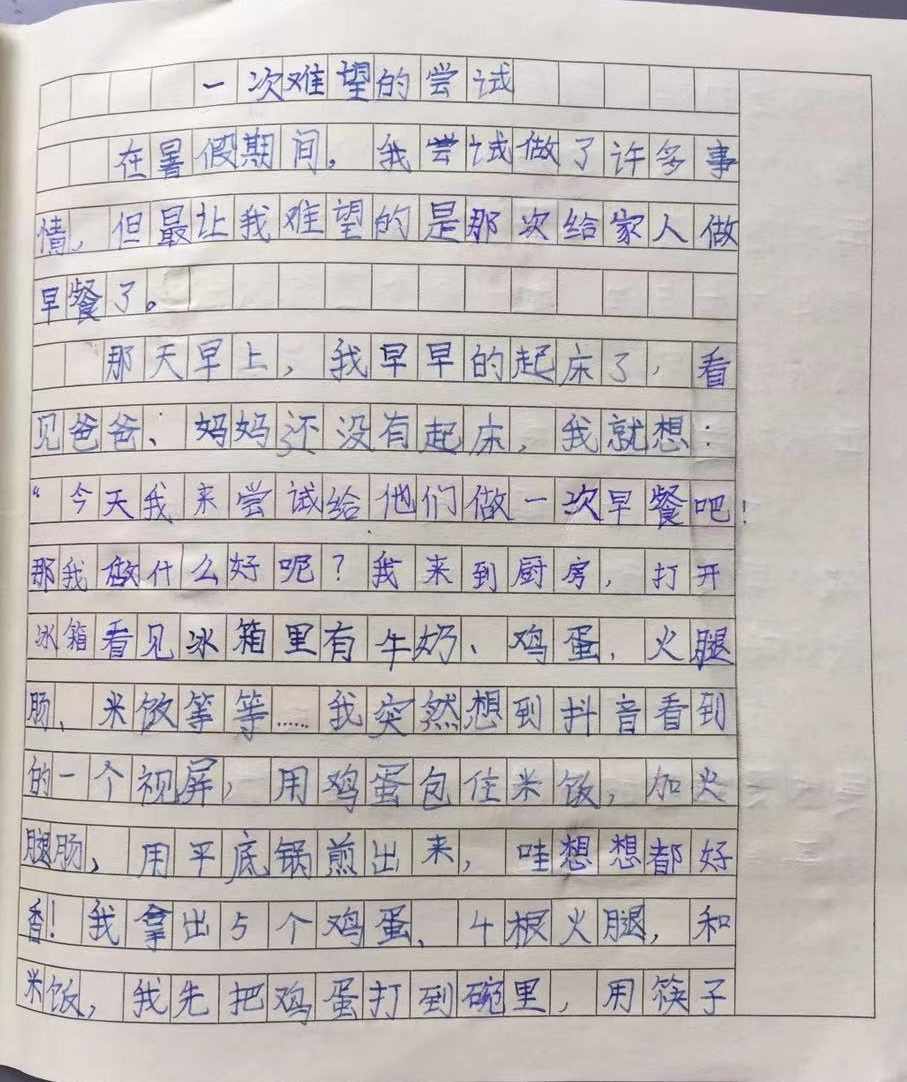 一次难望的尝试
在暑假期间，我尝试做了许多事
情，但最让我难望的是那次给家人做
早餐了。
那天早上，我早早的起床了，看
见爸爸、妈妈还没有起床，我就想：
“今天我来尝试给他们做一次早餐吧！
那我做什么好呢？我来到厨房，打开
冰箱看见冰箱里有牛奶、鸡蛋、火腿
肠、米饭等等……我突然想到抖音看到
的一个视屏，用鸡蛋包住米饭，加火
腿肠，用平底锅煎出来，哇想想都好
香！我拿出5个鸡蛋、4根火腿，和
米饭，我先把鸡蛋打到碗里，用筷子